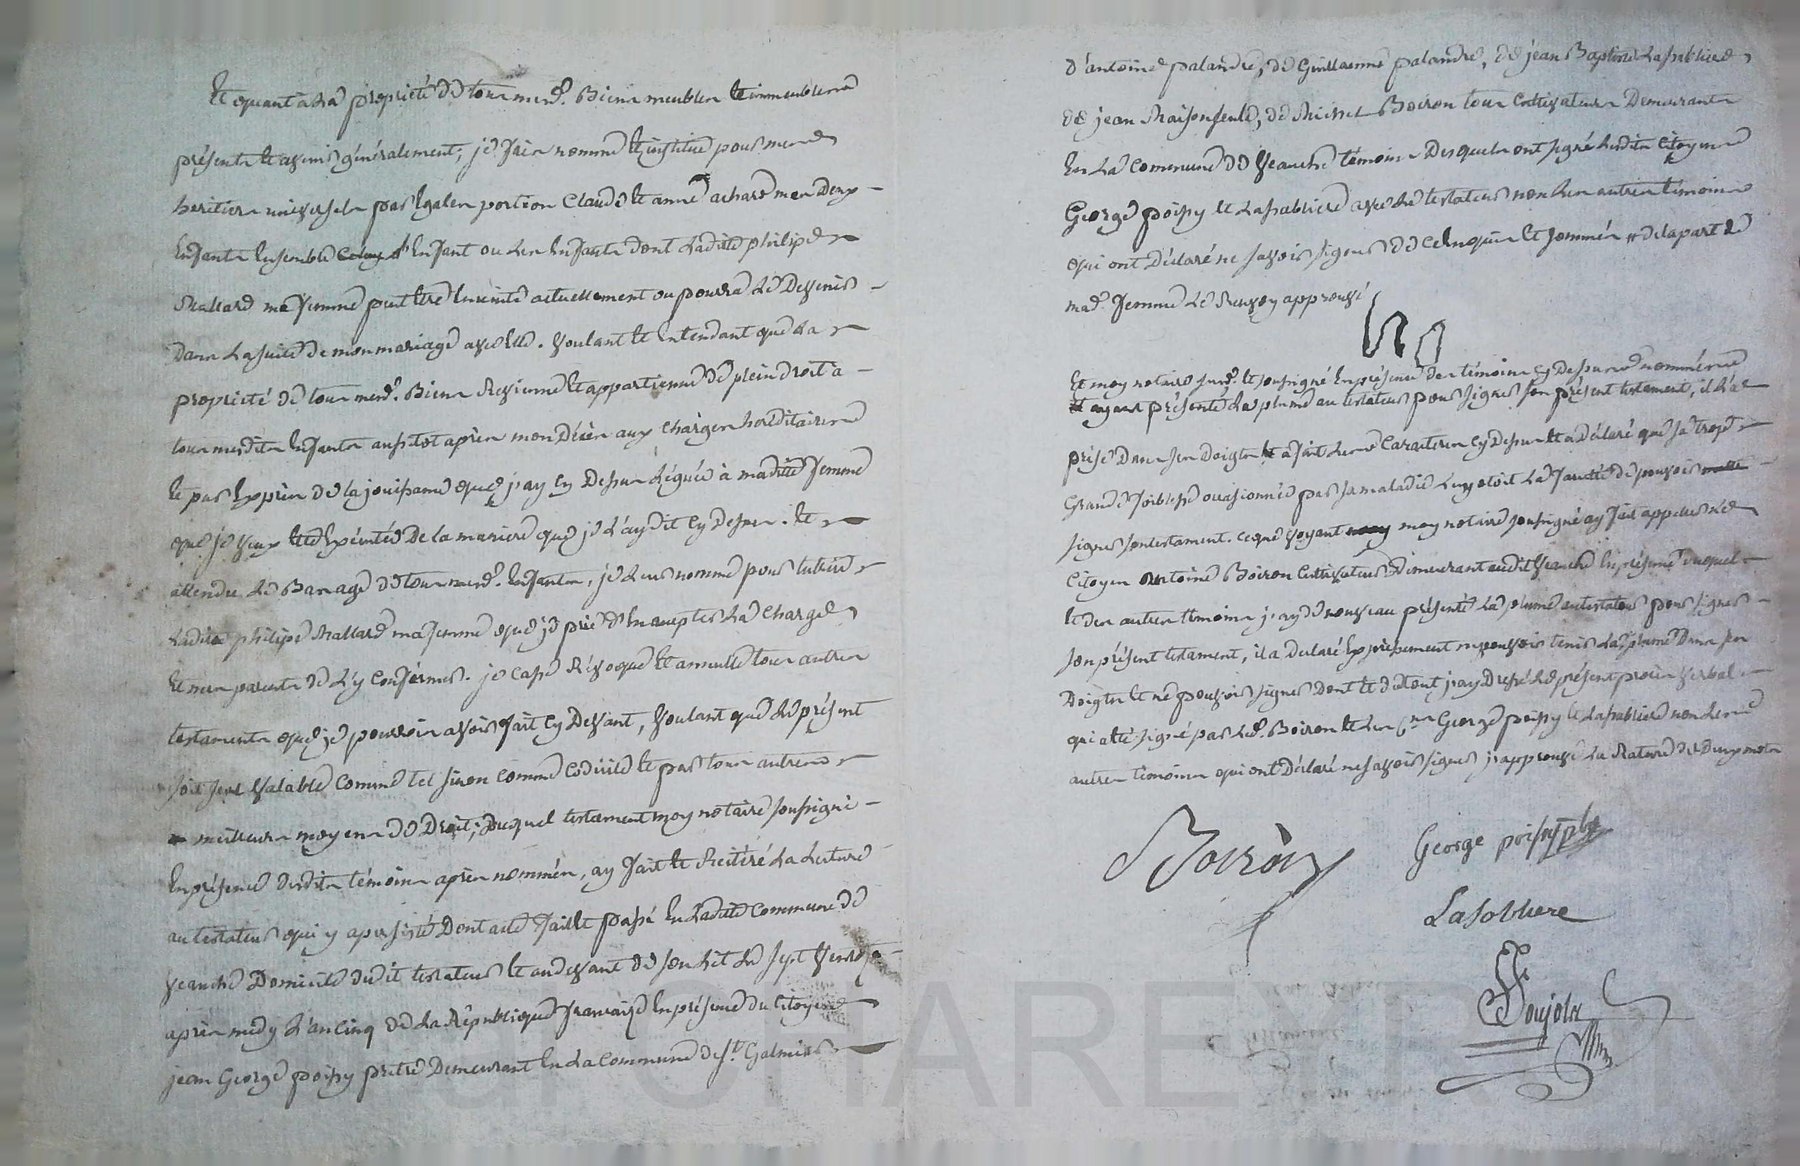 Et quant à la propriété de tous mesd. Biens meubles et immeubles
présents et avenir généralement, je fais nomme et institue pour mes
heritiers universels par egales portion Claude et anne achard mes deux
Enfants Ensemble Enfant ou les Enfants dont ladite philipe
Mallard ma femme peut etre Enceinte actuellement ou pourra le Devenir
Dans la suite de mon mariage avec Elle. Voulant et Entendant que la
propriété de tous mesd. Biens Revienne et appartienne de plein droit a
tous mesdits Enfants aussitot après mon Décès aux charges hereditaires
et par Exprès de la jouissance que j'ay cy Dessus Léguée à madite femme
que je veux etre Exécutée De la maniere que je l'ay dit cy Dessus. Et
attendu le Bas age de tous mesd. Enfants, je leur nomme pour tutrice
Ladite philipe Mallard ma femme que je prie d'En accepter la charge
Et mes parents de s'y Conformer. je Casse Révoque et annulle tous autres
testaments que je pourrois avoir fait cy Devant, Voulant que le présent
soit seul Valable comme tel sinon comme Codicile et par tous autres
meilleurs moyens de Droit; Duquel testament moy notaire soussigné
En présence desdits témoins après nommés, ay fait et Reitéré la Lecture
au testateur qui y a persisté Dont acte fait et passé En ladite commune de
Veauche Domicile dudit testateur et au devant de son Lit Le sept Ventose
après midy L'an Cinq de la République francaise En présence du Citoyen
jean George poissy pretre Demeurant En la Commune de St. Galmier
d'antoine palandre, de Guillaume palandre, de jean Baptiste Lasabliere
de jean Maisonseule, de Michel Boiron tous Cultivateurs Demeurants
En la Commune de Veauche témoins Desquels ont signé lesdits Citoyens
George poissy et Lasabliere avec le testateur non les autres témoins
qui ont Déclaré ne savoir signer de ce Enquis et sommés # de la part de
mad. femme le Renvoy approuvé
Et moy notaire susd. et soussigné En présence des témoins cy Dessus nommés
ayant présenté la plume au testateur pour signer son présent testament, il l'a
prise Dans ses Doigts et a fait les Caracteres cy Dessus et a Déclaré que sa trop
Grande foiblesse ocasionnée par sa maladie luy otoit La faculté de pouvoir
signer son testament. ce que Voyant moy notaire soussigné ay fait appeler le
Citoyen antoine Boiron Cultivateur Demeurant audit Veauche En présence duquel
et des autres témoins j'ay de nouveau présenté La plume au testateur pour signer
son présent testament, il a declaré Expressement ne pouvoir tenir La plume Dans ses
Doigts et ne pouvoir signer Dont et du tout j'ay Dressé le présent procès Verbal
qui a été signé par led. Boiron et les Cns George poissy et Lasabliere non les
autres témoins qui ont Déclaré ne savoir signer j'approuve la Rature de deux mots
Boiron
George poissy ptre
Lasabliere
Poujola